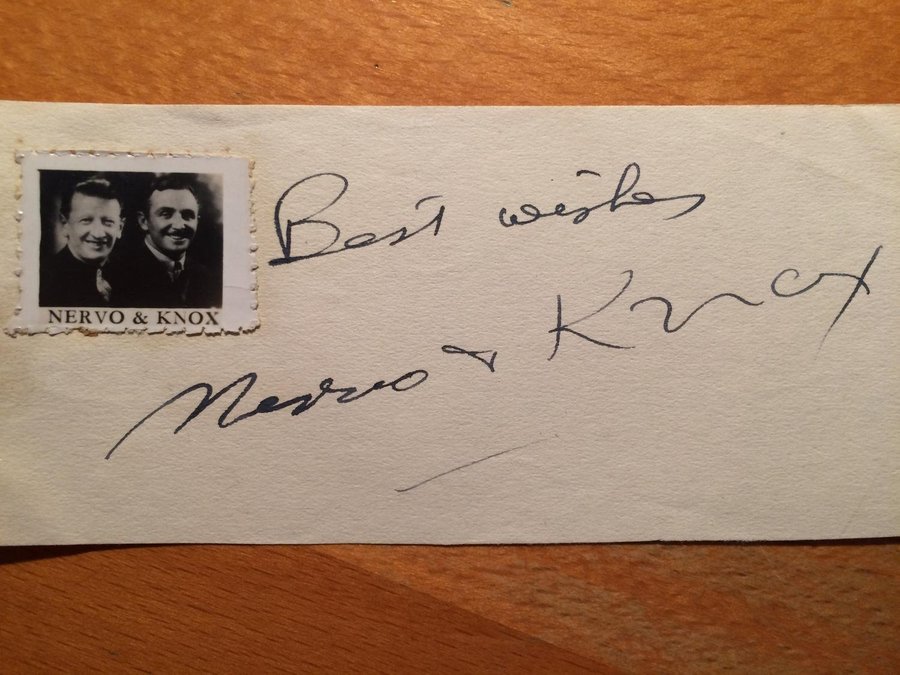 NERVO & KNOX
Best wishes
Nervo & Knox